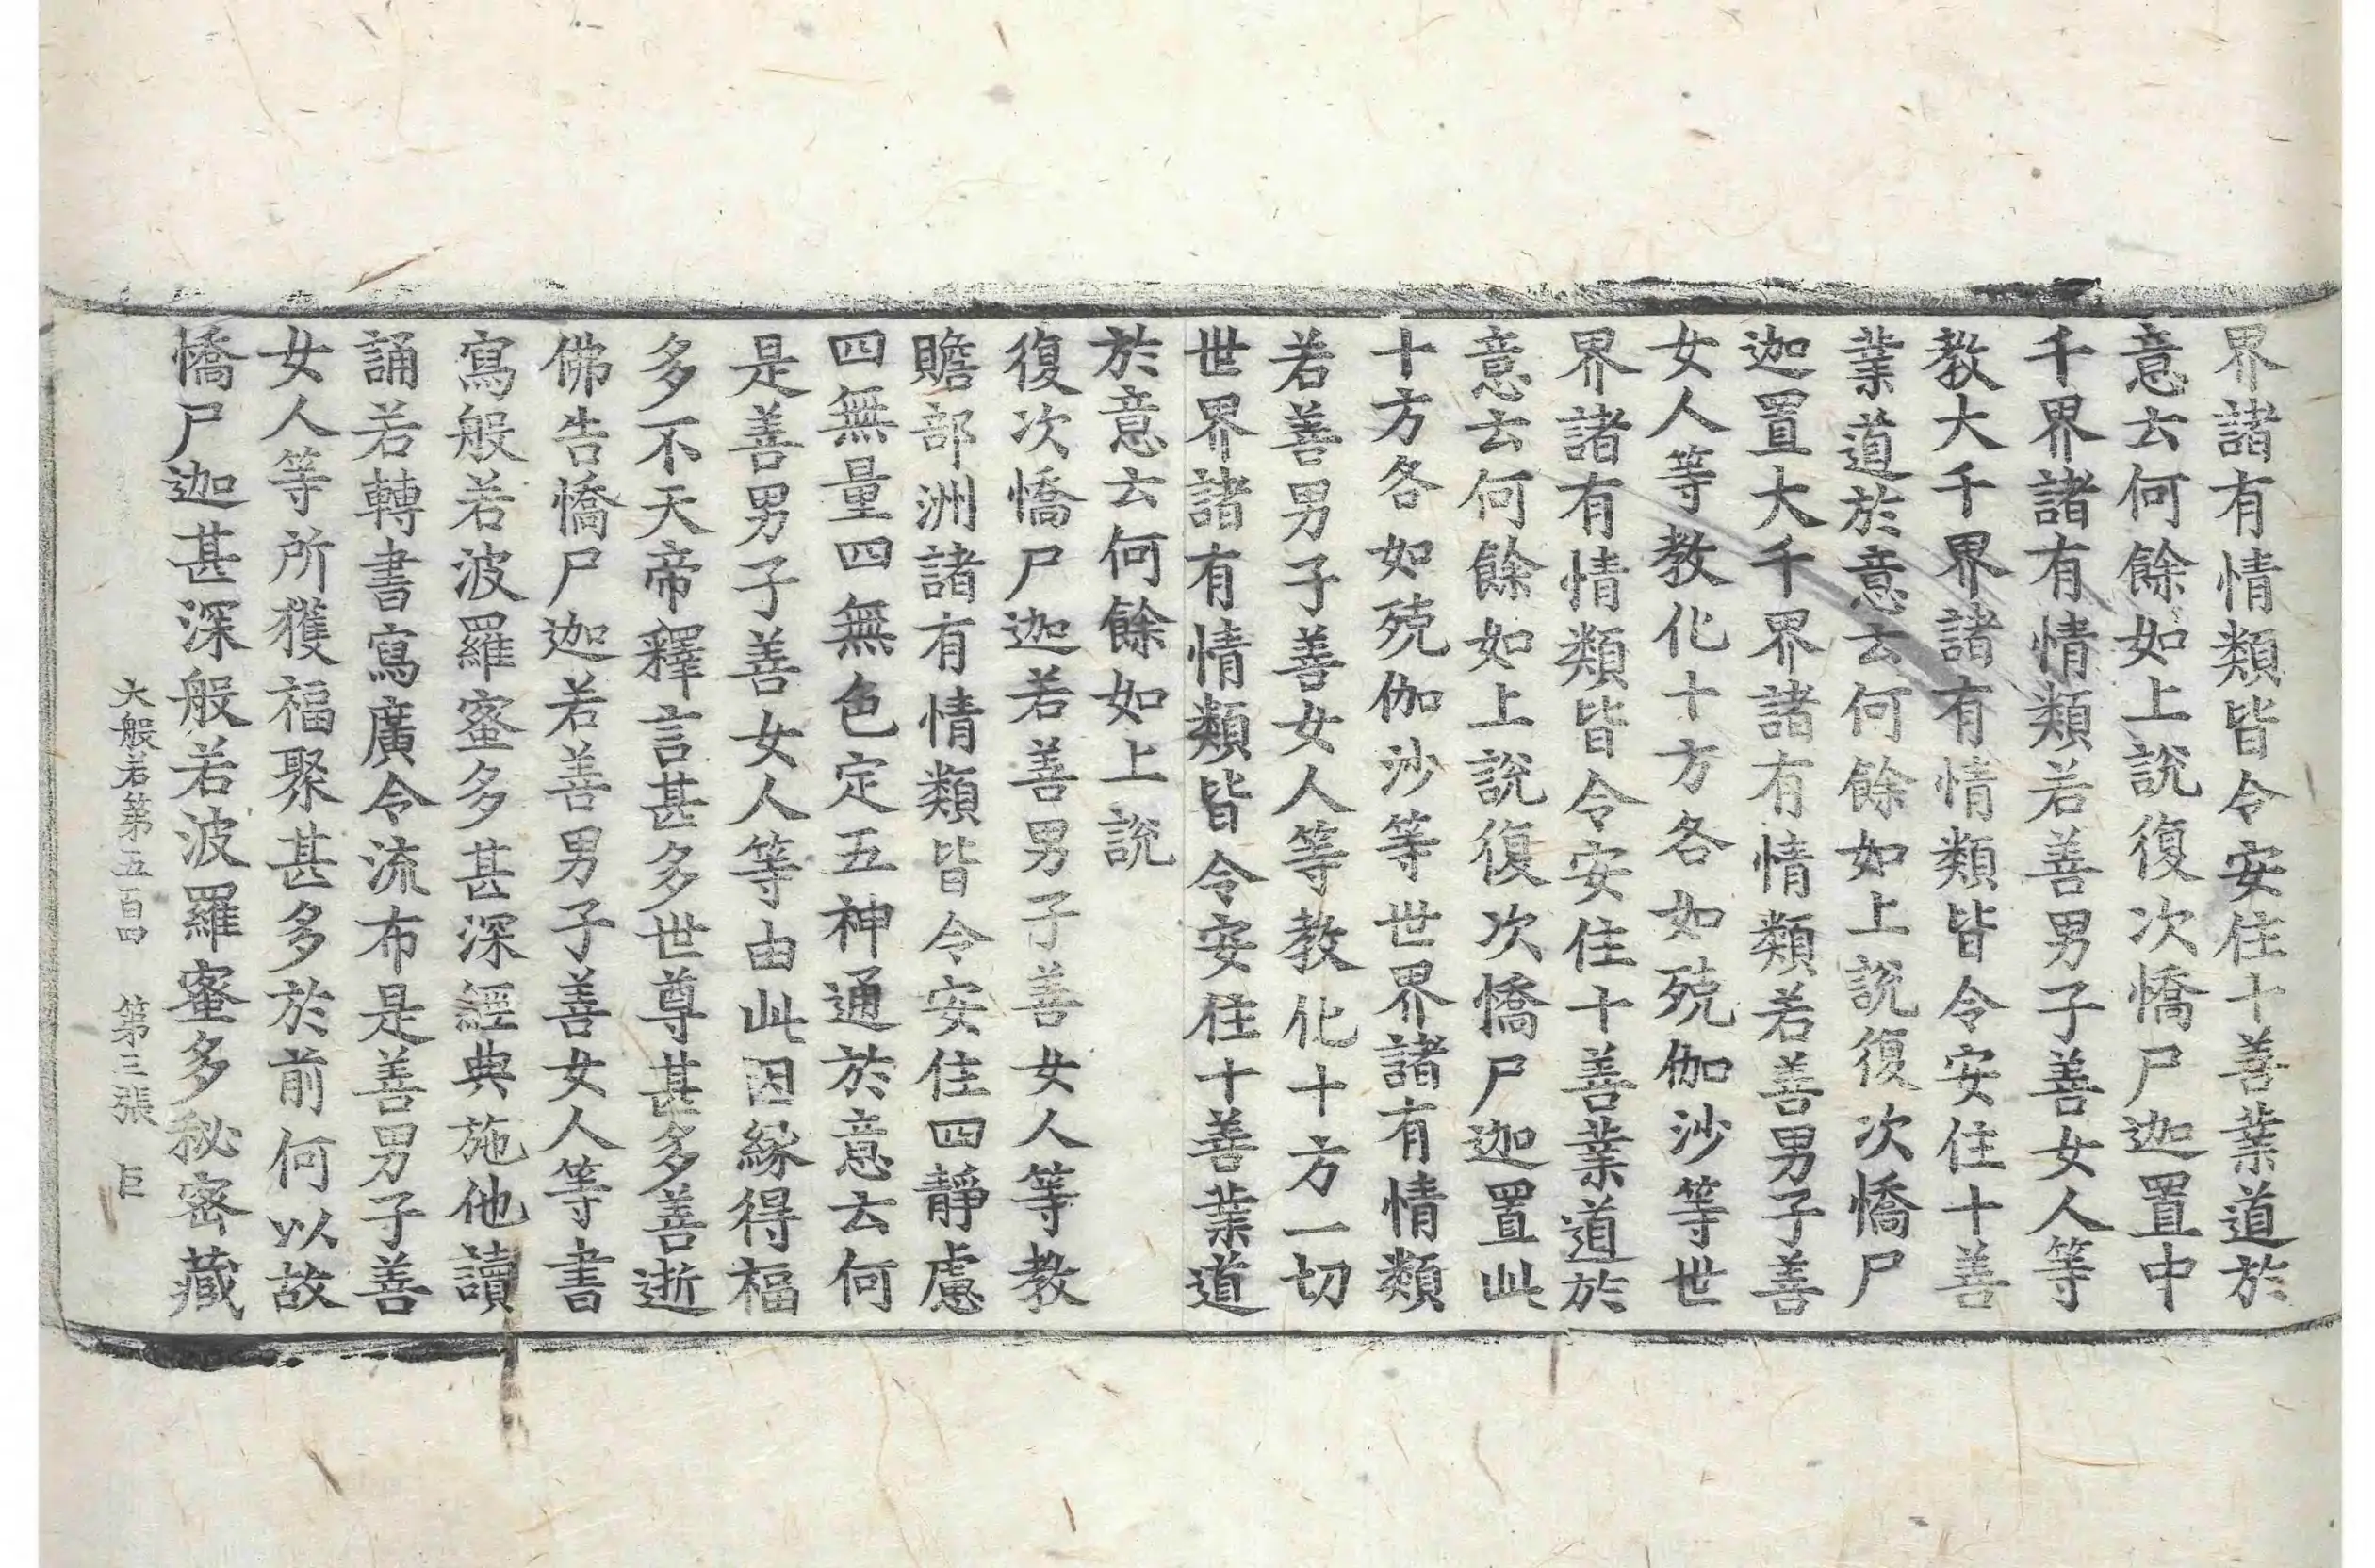 界諸有情類皆令安住十善業道於
意云何餘如上說復次憍尸迦置中
千界諸有情類若善男子善女人等
教大千界諸有情類皆令安住十善
業道於意云何餘如上說復次憍尸
迦置大千界諸有情類若善男子善
女人等教化十方各如殑伽沙等世
界諸有情類皆令安住十善業道於
意云何餘如上說復次憍尸迦置此
十方各如殑伽沙等世界諸有情類
若善男子善女人等教化十方一切
世界諸有情類皆令安住十善業道
於意云何餘如上說
復次憍尸迦若善男子善女人等教
贍部洲諸有情類皆令安住四靜慮
四無量四無色定五神通於意云何
是善男子善女人等由此因緣得福
多不天帝釋言甚多世尊甚多善逝
佛告憍尸迦若善男子善女人等書
寫般若波羅蜜多甚深經典施他讀
誦若轉書寫廣令流布是善男子善
女人等所獲福聚甚多於前何以故
憍尸迦甚深般若波羅蜜多秘密藏
大般若第五百四 第三張 巨